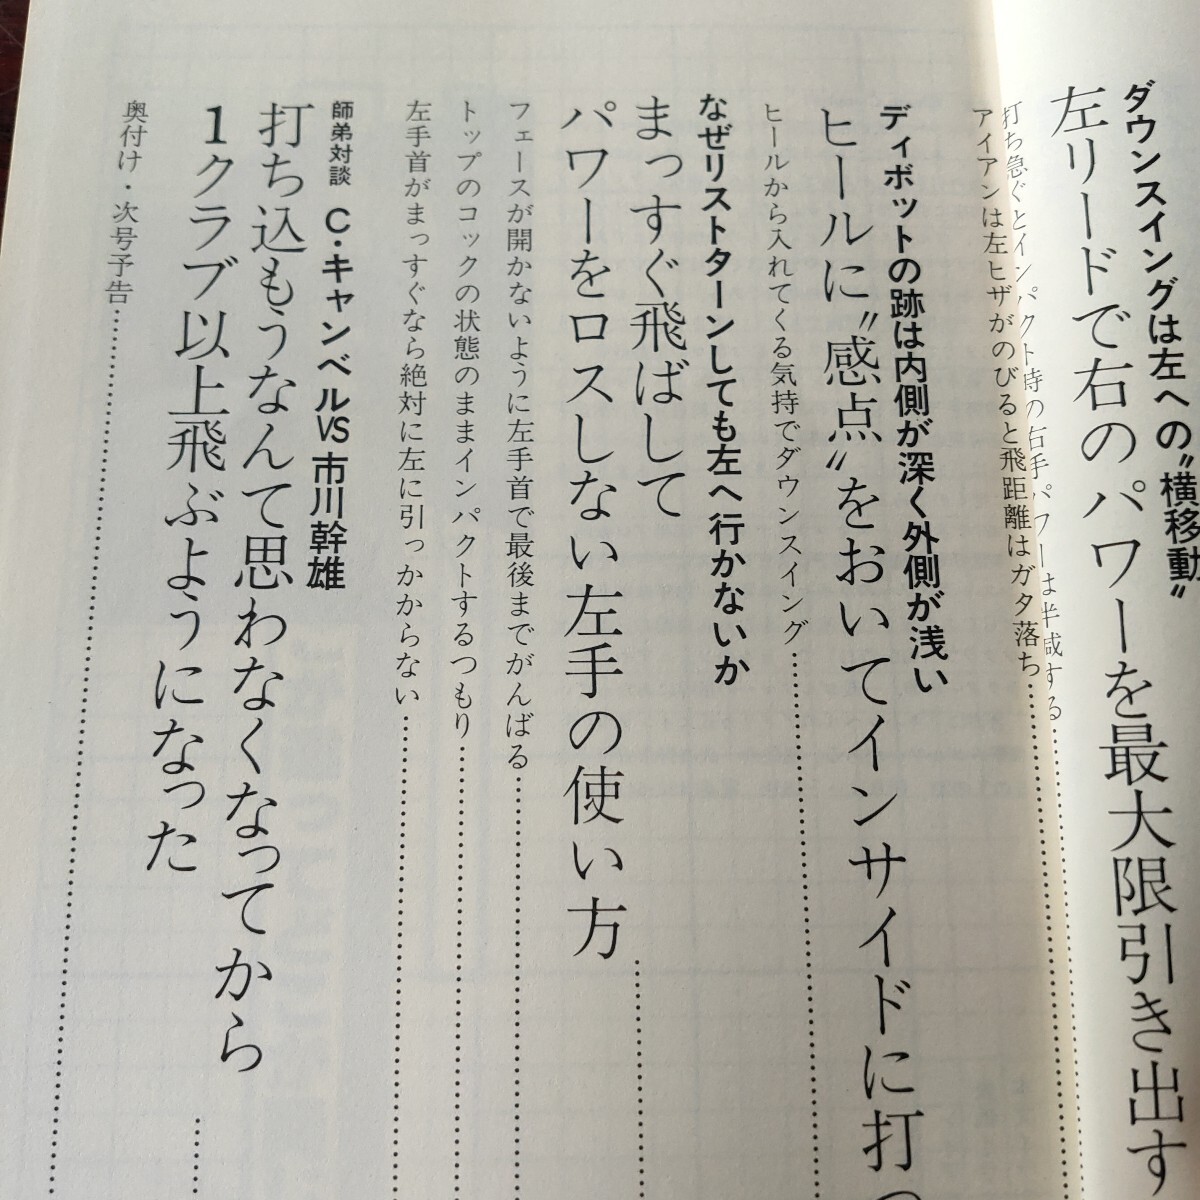 ダウンスイングは左への〝横移動〟
左リードで右のパワーを最大限引き出す
打ち急ぐとインパクト時の右手パワーは半減する
アイアンは左ヒザがのびると飛距離はガタ落ち
ディボットの跡は内側が深く外側が浅い
ヒールに〝感点〟をおいてインサイドに打っ
ヒールから入れてくる気持でダウンスイング
なぜリストターンしても左へ行かないか
まっすぐ飛ばして
パワーをロスしない左手の使い方
フェースが開かないように左手首で最後までがんばる
トップのコックの状態のままインパクトするつもり
左手首がまっすぐなら絶対に左に引っかからない
師弟対談 C・キャンベルVS市川幹雄
打ち込もうなんて思わなくなってから
1クラブ以上飛ぶようになった
奥付け・次号予告